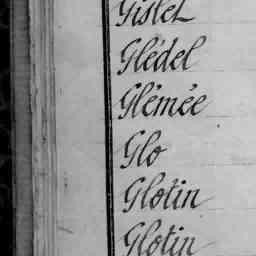 Gislet
Glédel
Glémée
Glo
Glotin
Glotin